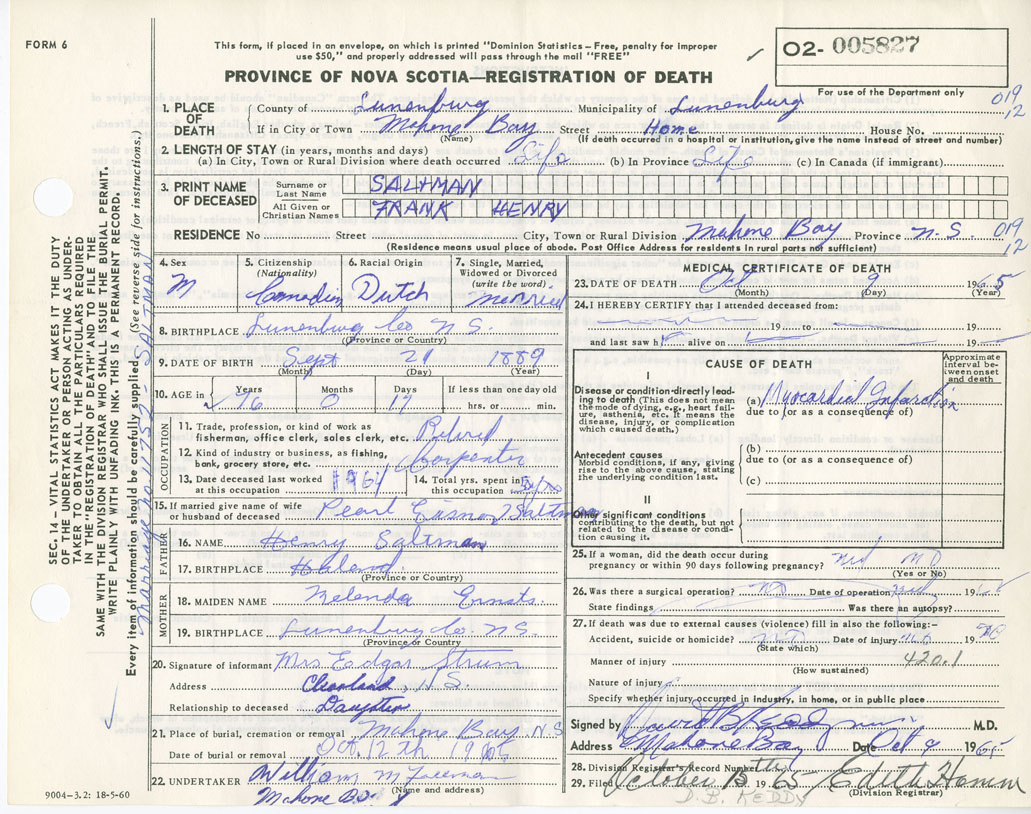 FORM 6
This form, if placed in an envelope, on which is printed "Dominion Statistics – Free, penalty for improper
use $50," and properly addressed will pass through the mail "FREE"
O2- 005827
For use of the Department only
PROVINCE OF NOVA SCOTIA—REGISTRATION OF DEATH
019
12
1. PLACE OF DEATH
County of Lunenburg Municipality of Lunenburg
If in City or Town Mahone Bay Street Home House No.
(Name) (If death occurred in a hospital or institution, give the name instead of street and number)
2. LENGTH OF STAY (in years, months and days)
(a) In City, Town or Rural Division where death occurred Life (b) In Province Life (c) In Canada (if immigrant)
3. PRINT NAME OF DECEASED
Surname or Last Name SALTMAN
All Given or Christian Names FRANK HENRY
RESIDENCE No Street City, Town or Rural Division Mahone Bay Province N.S.
019
12
(Residence means usual place of abode. Post Office Address for residents in rural parts not sufficient)
SEC. 14 – VITAL STATISTICS ACT MAKES IT THE DUTY
OF THE UNDERTAKER OR PERSON ACTING AS UNDER-
TAKER TO OBTAIN ALL THE PARTICULARS REQUIRED
IN THE "REGISTRATION OF DEATH" AND TO FILE THE
SAME WITH THE DIVISION REGISTRAR WHO SHALL ISSUE THE BURIAL PERMIT.
WRITE PLAINLY WITH UNFADING INK. THIS IS A PERMANENT RECORD.
Every item of information should be carefully supplied. (See reverse side for instructions.)
Marriage no 11753 - SALTMAN
4. Sex M
5. Citizenship (Nationality) Canadian
6. Racial Origin Dutch
7. Single, Married, Widowed or Divorced (write the word) Married
8. BIRTHPLACE Lunenburg Co N.S.
(Province or Country)
9. DATE OF BIRTH Sept 21 1889
(Month) (Day) (Year)
10. AGE in Years 76 Months 0 Days 17 If less than one day old hrs. or min.
OCCUPATION
11. Trade, profession, or kind of work as
fisherman, office clerk, sales clerk, etc. Retired
12. Kind of industry or business, as fishing,
bank, grocery store, etc. Carpenter
13. Date deceased last worked
at this occupation 1964
14. Total yrs. spent in
this occupation
15. If married give name of wife
or husband of deceased Pearl Eisnor Saltman
FATHER
16. NAME Henry Saltman
17. BIRTHPLACE Holland
(Province or Country)
MOTHER
18. MAIDEN NAME Melenda Ernsts
19. BIRTHPLACE Lunenburg Co. N.S.
(Province or Country)
20. Signature of informant Mrs Eedgar Strum
Address Cleveland, N.S.
Relationship to deceased Daughter
21. Place of burial, cremation or removal Mahone Bay N.S
Date of burial or removal Oct. 12th 1965
22. UNDERTAKER William M Freeman
(Name and address)
Mahone Bay
9004–3.2: 18-5-60
MEDICAL CERTIFICATE OF DEATH
23. DATE OF DEATH Oct 9 1965
(Month) (Day) (Year)
24. I HEREBY CERTIFY that I attended deceased from:
19 to 19
and last saw h alive on 19
CAUSE OF DEATH
Approximate interval between onset and death
I
Disease or condition directly leading to death (This does not mean the mode of dying, e.g., heart failure, asthenia, etc. It means the disease, injury, or complication which caused death.)
(a) Myocardial Infarction
due to (or as a consequence of)
Antecedent causes
Morbid conditions, if any, giving rise to the above cause, stating the underlying condition last.
(b)
due to (or as a consequence of)
(c)
II
Other significant conditions
contributing to the death, but not related to the disease or condition causing it.
25. If a woman, did the death occur during
pregnancy or within 90 days following pregnancy?
(Yes or No)
26. Was there a surgical operation? Date of operation 19
State findings Was there an autopsy?
27. If death was due to external causes (violence) fill in also the following:–
Accident, suicide or homicide? Date of injury 19
(State which)
Manner of injury 420.1
(How sustained)
Nature of injury
Specify whether injury occurred in industry, in home, or in public place
Signed by M.D.
Address Mahone Bay Date Oct 9 1965
28. Division Registrar's Record Number
29. Filed October 15th 1965 Edith Hamm
(Division Registrar)
D.B. KEDDY